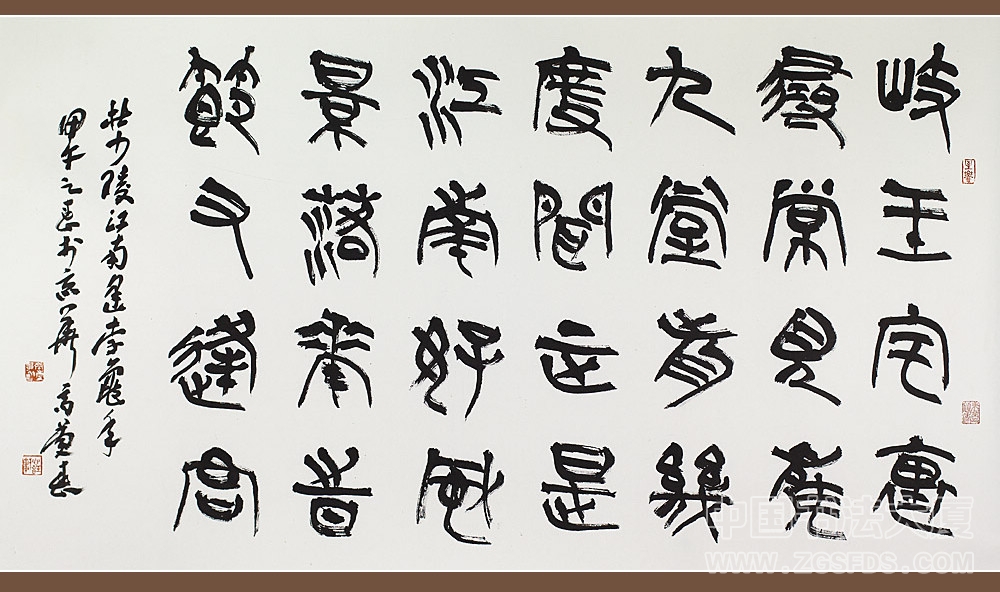 岐王宅裏
尋常見崔
九堂前幾
度聞正是
江南好風
景落花時
節又逢君
杜少陵江南逢李龜年
甲午之春於京華 高慶春
中国书法大厦
WWW.ZGSFDS.COM